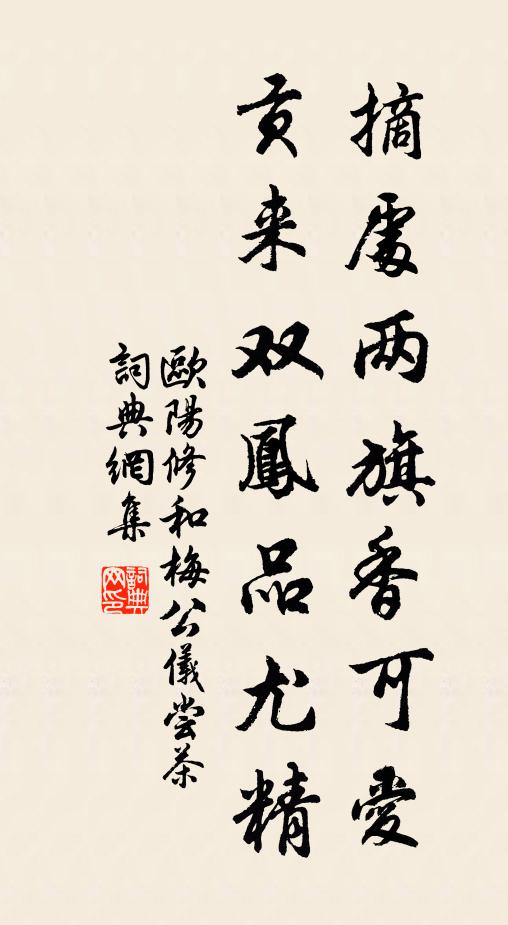 摘處两旗香可愛
貢来双鳳品尤精
歐陽修和梅公儀嘗茶
詞典網集
詞典網印